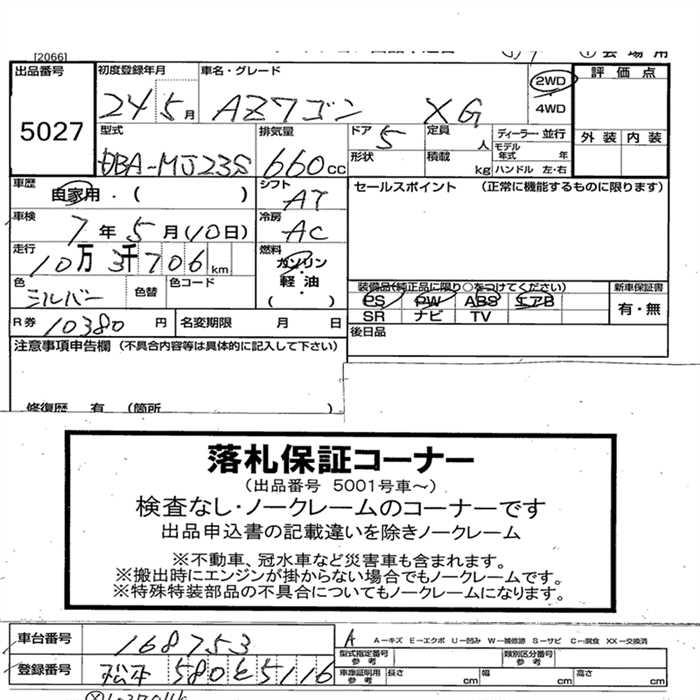 [2066]
出品番号 初度登録年月 車名・グレード 2WD 評価点
5027 24 5月 AZワゴン XG 4WD
型式 排気量 ドア 定員 ディーラー・並行 外装 内装
DBA-MJ23S 660cc 5 人 モデル年式 年
形状 積載 kg ハンドル 左・右
車歴 自家用・( ) シフト AT セールスポイント (正常に機能するものに限ります)
車検 7年5月(10日) 冷房 AC
走行 10万3千706km 燃料 ガソリン
軽油
( )
色 シルバー 色替 色コード 装備品(純正品に限り○をつけてください) 新車保証書
PS PW ABS エアB 有・無
SR ナビ TV
R券 10380円 名変期限 月 日 後日品
注意事項申告欄 (不具合内容等は具体的に記入して下さい)
修復歴 有 (箇所 )
落札保証コーナー
(出品番号 5001号車~)
検査なし・ノークレームのコーナーです
出品申込書の記載違いを除きノークレーム
※不動車、冠水車など災害車も含まれます。
※搬出時にエンジンが掛からない場合でもノークレームです。
※特殊特装部品の不具合についてもノークレームになります。
車台番号 168753 A A−キズ E−エクボ U−凹み W−補修跡 S−サビ C−腐食 XX−交換済
型式指定番号 参考 類別区分番号 参考
登録番号 松本 580 を 5116 車庫証明用 参考 長さ cm 幅 cm 高さ cm